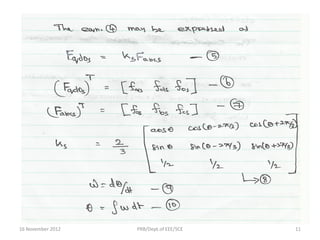 The eqn. ④ may be expressed as
Fqdos = Ks Fabcs — ⑤
(Fqdos)^T = [fqs fds fos] — ⑥
(Fabcs)^T = [fas fbs fcs] — ⑦
Ks = 2/3 [cosθ cos(θ-2π/3) cos(θ+2π/3)
sinθ sin(θ-2π/3) sin(θ+2π/3)
1/2 1/2 1/2] — ⑧
ω = dθ/dt — ⑨
θ = ∫ω dt — ⑩
16 November 2012 PRB/Dept.of EEE/SCE 11